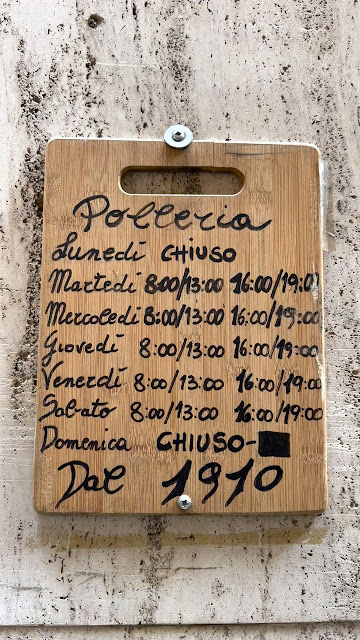 Polleria
Lunedì CHIUSO
Martedì 8:00/13:00 16:00/19:00
Mercoledì 8:00/13:00 16:00/19:00
Giovedì 8:00/13:00 16:00/19:00
Venerdì 8:00/13:00 16:00/19:00
Sabato 8:00/13:00 16:00/19:00
Domenica CHIUSO-
Dal 1910